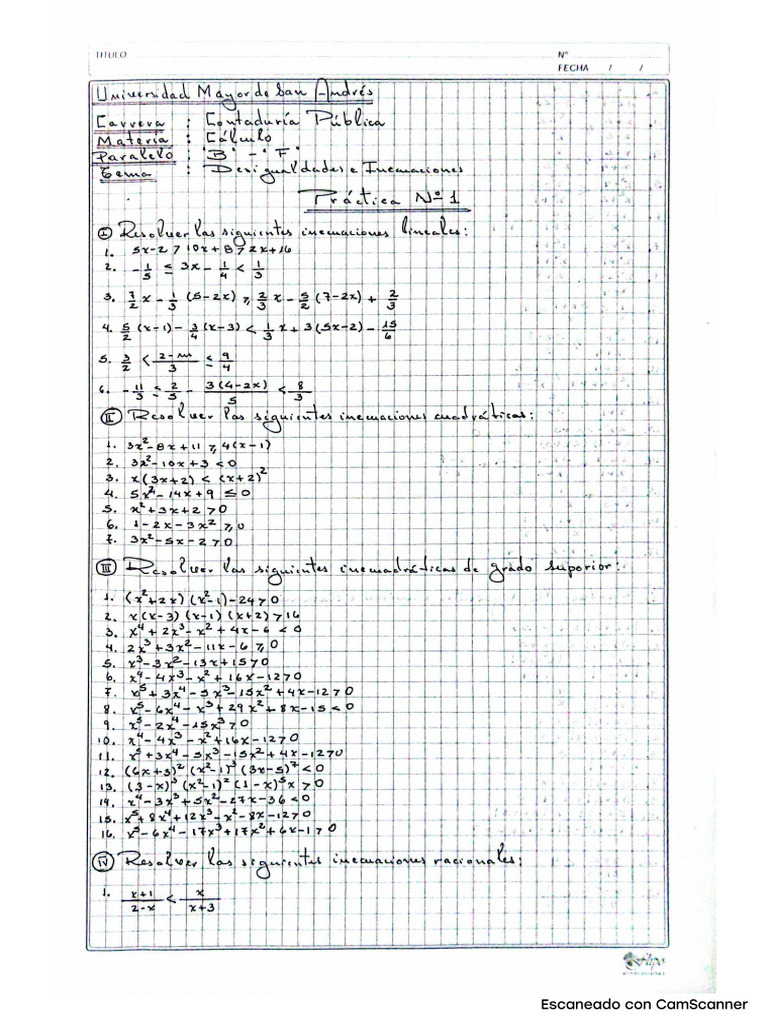 TITULO
Nº
FECHA / /
Universidad Mayor de San Andrés
Carrera : Contaduría Pública
Materia : Cálculo
Paralelo : "B" - "F"
Tema : Desigualdades e Inecuaciones
Práctica Nº 1
I Resolver las siguientes inecuaciones lineales:
1. 5x-2 > 10x+8 > 2x+16
2. -1/5 ≤ 3x - 1/4 < 1/3
3. 7/2 x - 1/3 (5-2x) ≥ 2/3 x - 5/2 (7-2x) + 2/3
4. 5/2 (x-1) - 3/4 (x-3) < 1/3 x + 3(5x-2) - 15/6
5. 3/2 < (2-m)/3 ≤ 9/4
6. -11/3 ≤ 2/5 - 3(4-2x)/5 < 8/3
II Resolver las siguientes inecuaciones cuadráticas:
1. 3x²-8x+11 ≥ 4(x-1)
2. 3x²-10x+3 < 0
3. x(3x+2) < (x+2)²
4. 5x²-14x+9 ≤ 0
5. x²+3x+2 > 0
6. 1-2x-3x² ≥ 0
7. 3x²-5x-2 > 0
III Resolver las siguientes inecuadráticas de grado superior:
1. (x²+2x)(x²-1)-24 > 0
2. x(x-3)(x-1)(x+2) > 16
3. x⁴+2x³-x²+4x-6 < 0
4. 2x³+3x²-11x-6 ≥ 0
5. x³-3x²-13x+15 > 0
6. x⁴-4x³-x²+16x-12 > 0
7. x⁵+3x⁴-5x³-15x²+4x-12 > 0
8. x⁵-6x⁴-x³+29x²+8x-15 < 0
9. x⁵-2x⁴-15x³ > 0
10. x⁴-4x³-x²+16x-12 > 0
11. x⁵+3x⁴-5x³-15x²+4x-12 > 0
12. (6x+3)²(x²-1)³(3x-5)⁷ < 0
13. (3-x)³(x²-1)²(1-x)⁵x > 0
14. x⁴-3x³+5x²-27x-36 < 0
15. x⁵+8x⁴+12x³-x²-8x-12 > 0
16. x⁵-6x⁴-17x³+17x²+6x-1 > 0
IV Resolver las siguientes inecuaciones racionales:
1. (x+1)/(2-x) < x/(x+3)
Flipo
Escaneado con CamScanner